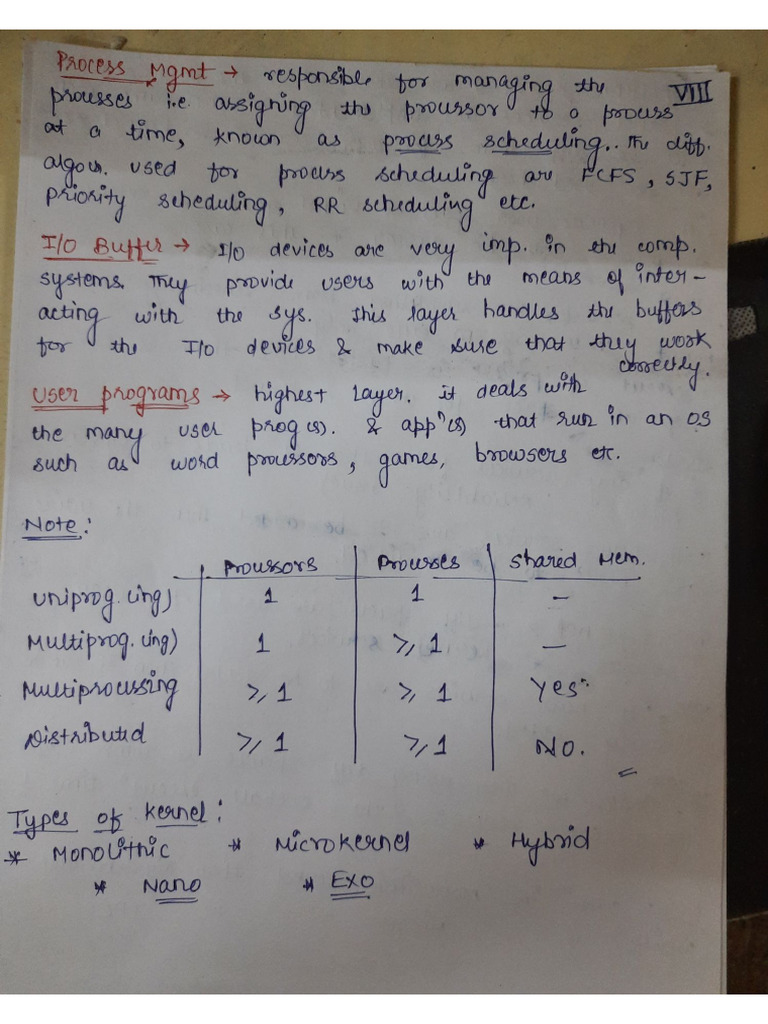 Process Mgmt → responsible for managing the VIII
processes i.e. assigning the processor to a process
at a time, known as process scheduling. The diff.
algos. used for process scheduling are FCFS, SJF,
priority scheduling, RR scheduling etc.
I/O Buffer → I/O devices are very imp. in the comp.
systems. They provide users with the means of inter-
acting with the sys. This layer handles the buffers
for the I/O devices & make sure that they work
correctly.
User programs → highest layer. it deals with
the many user prog(s). & appⁿ(s) that run in an OS
such as word processors, games, browsers etc.
Note:
Processors Processes Shared Mem.
Uniprog.(ing) 1 1 —
Multiprog.(ing) 1 ⩾ 1 —
Multiprocessing ⩾ 1 ⩾ 1 Yes
Distributed ⩾ 1 ⩾ 1 No.
Types of Kernel:
* Monolithic * Microkernel * Hybrid
* Nano * Exo